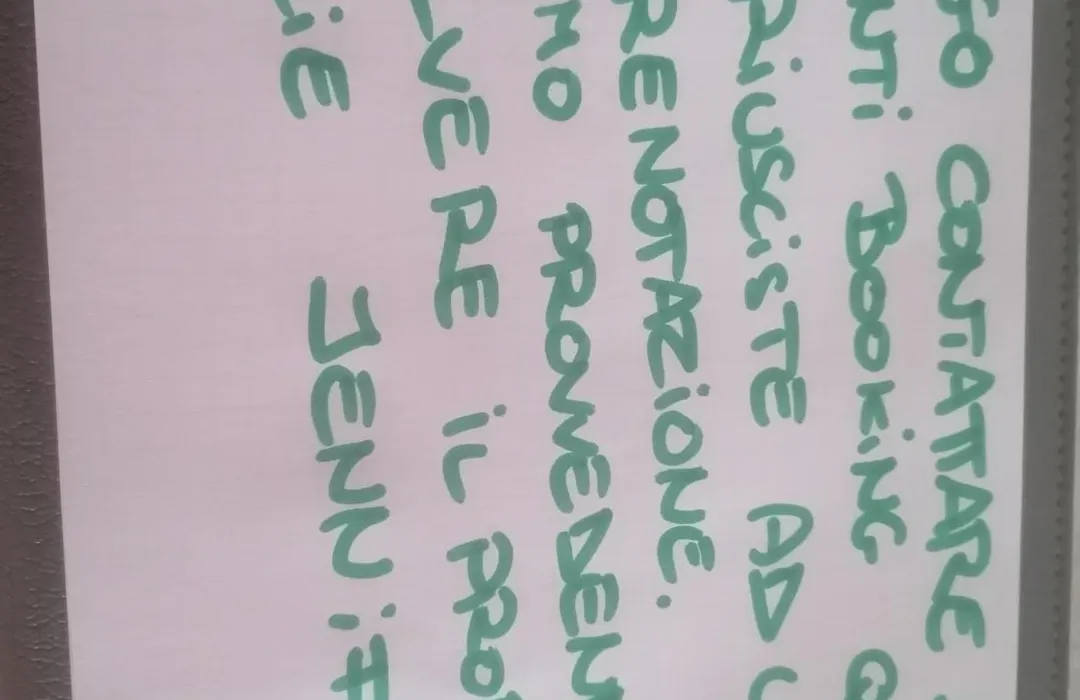 GO CONTATTARE
NTi BOOKiNG
RiUSCiSTE AD
RENOTAZiONE.
MO PROVVEDEN
LVERE iL PRO
iE JENNiF